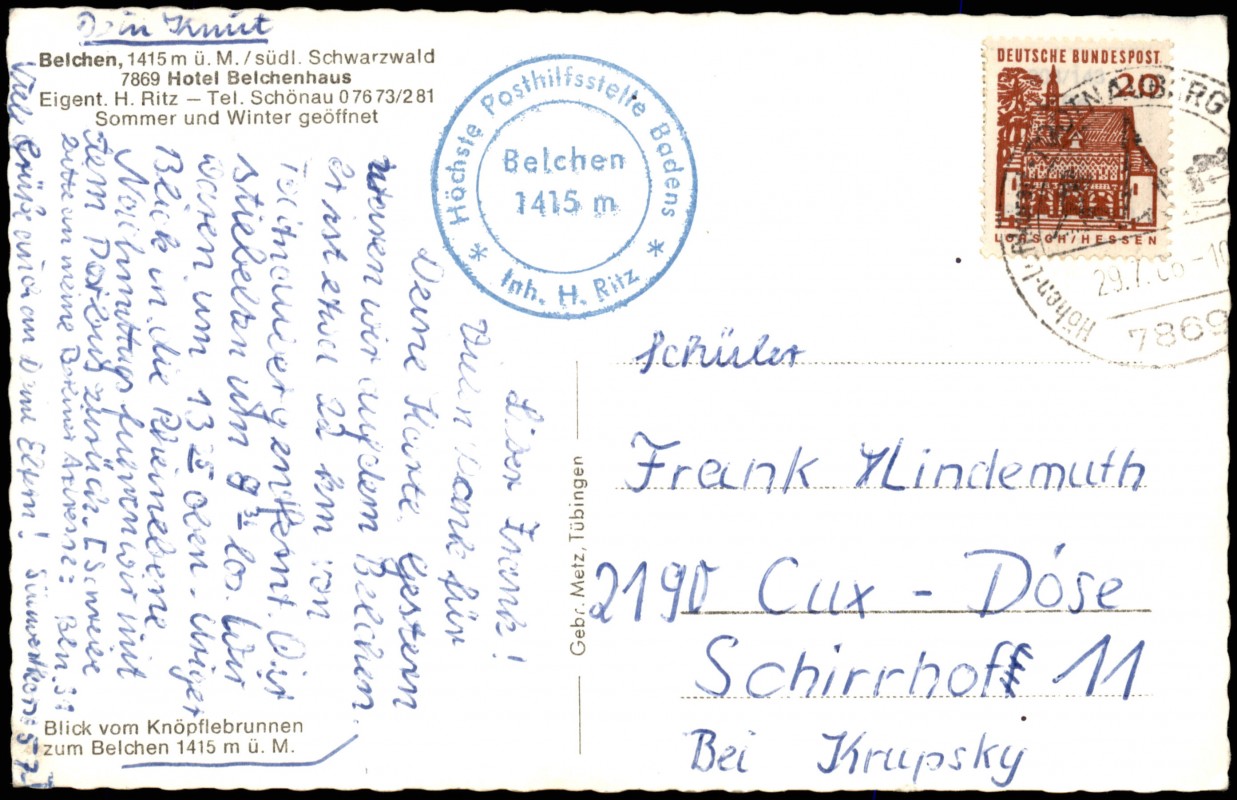 Dein Knut
Belchen, 1415 m ü. M. / südl. Schwarzwald
7869 Hotel Belchenhaus
Eigent. H. Ritz – Tel. Schönau 07673/281
Sommer und Winter geöffnet
* Höchste Posthilfsstelle Badens *
Belchen
1415 m
Inh. H. Ritz
DEUTSCHE BUNDESPOST
20
LORSCH/HESSEN
29.7.
7869
Lieber Frank!
Vielen Dank für
Deine Karte. Gestern
waren wir auf dem Belchen.
Er ist etwa 20 km von
entfernt. Wir
um 9 los. Wir
waren um 13 oben.
Blick in die Rheinebene
Nachmittag fuhren wir mit
dem zurück. Es
meine Berliner Adresse: Bln. 39
Viele Grüße auch an Deine Eltern!
Gebr. Metz, Tübingen
Schüler
Frank Hindemuth
2190 Cux - Döse
Schirrhoff 11
Bei Krupsky
Blick vom Knöpflebrunnen
zum Belchen 1415 m ü. M.